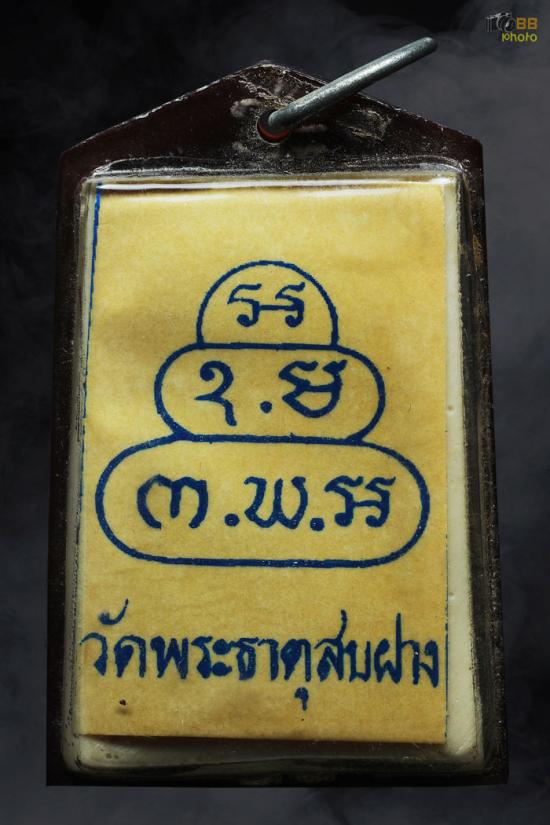 BB
photo
รร
๖.ย
๓.พ.รร
วัดพระธาตุสบฝาง